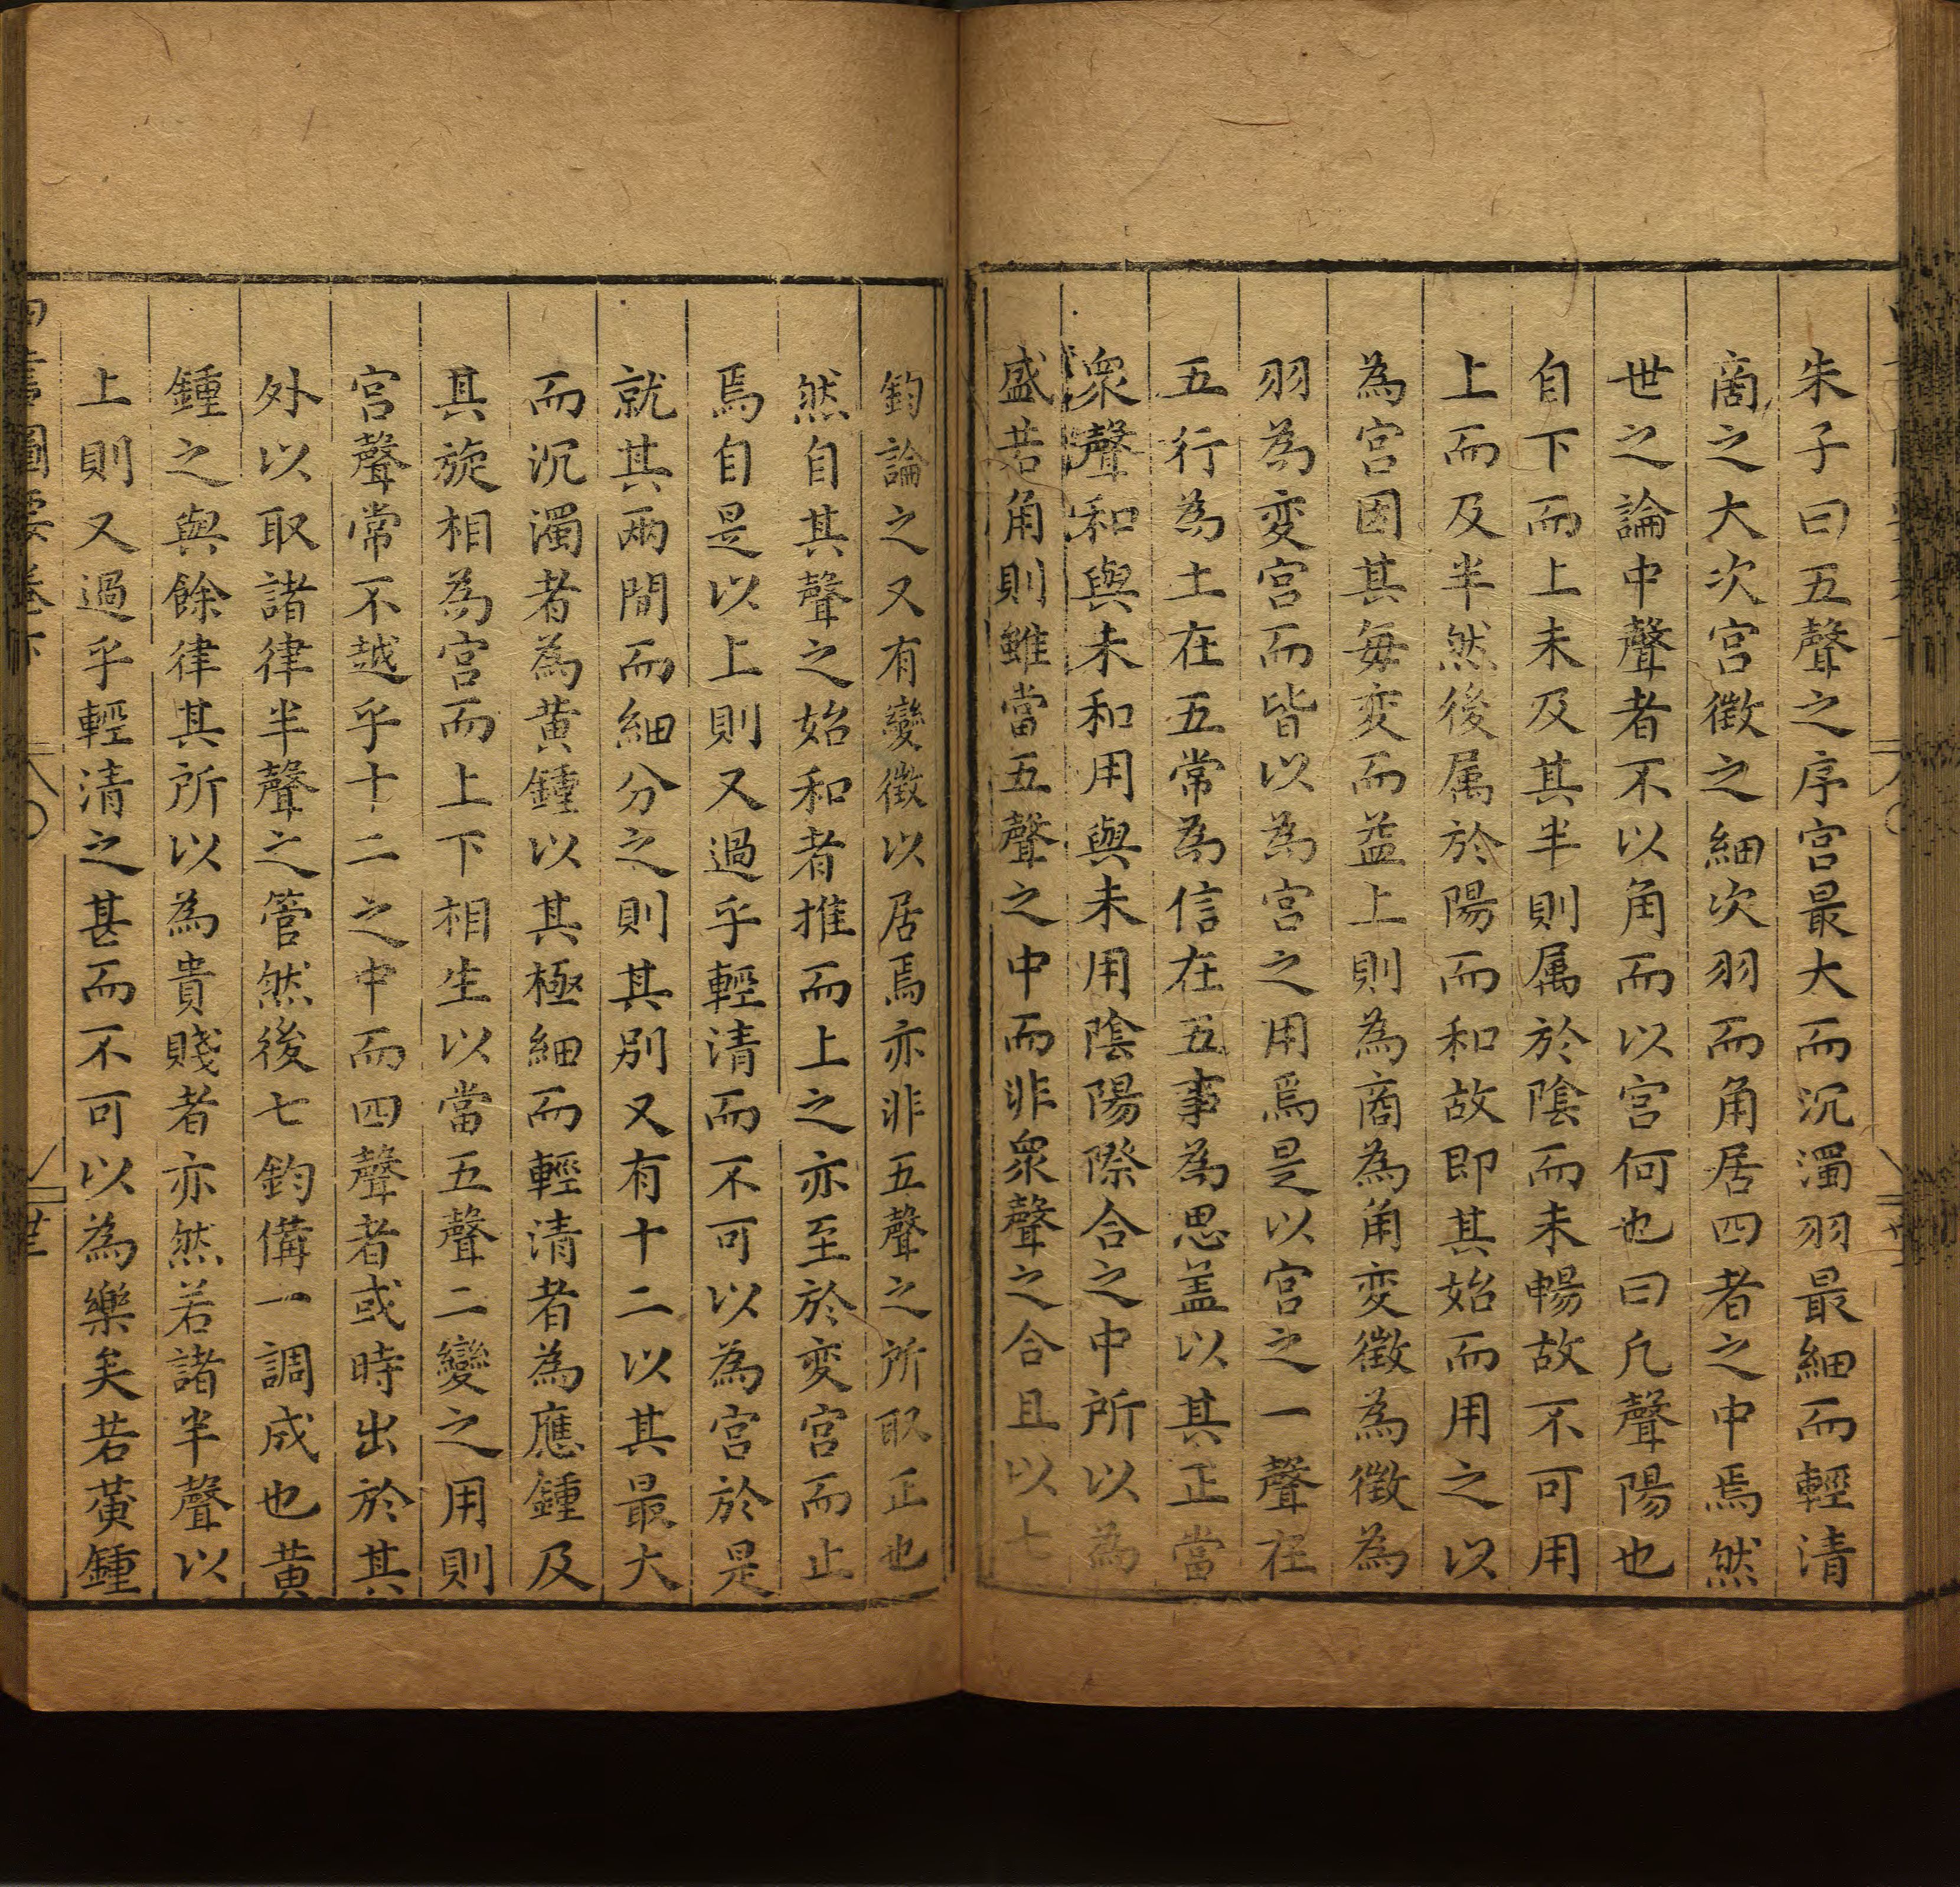 朱子曰五聲之序宮最大而沉濁羽最細而輕清
商之大次宮徵之細次羽而角居四者之中焉然
世之論中聲者不以角而以宮何也曰凡聲陽也
自下而上未及其半則属於陰而未暢故不可用
上而及半然後属於陽而和故即其始而用之以
為宮因其每变而益上則為商為角变徵為徵為
羽為变宮而皆以為宮之用焉是以宮之一聲在
五行為土在五常為信在五事為思盖以其正當
衆聲和與未和用與未用陰陽際合之中所以為
盛若角則雖當五聲之中而非衆聲之合且以七
鈞論之又有變徵以居焉亦非五聲之所取正也
然自其聲之始和者推而上之亦至於变宮而止
焉自是以上則又過乎輕清而不可以為宮於是
就其兩間而細分之則其別又有十二以其最大
而沉濁者為黃鍾以其極細而輕清者為應鍾及
其旋相為宮而上下相生以當五聲二變之用則
宮聲常不越乎十二之中而四聲者或時出於其
外以取諸律半聲之管然後七鈞備一調成也黃
鍾之與餘律其所以為貴賤者亦然若諸半聲以
上則又過乎輕清之甚而不可以為樂矣若黃鍾
四書圖要卷下